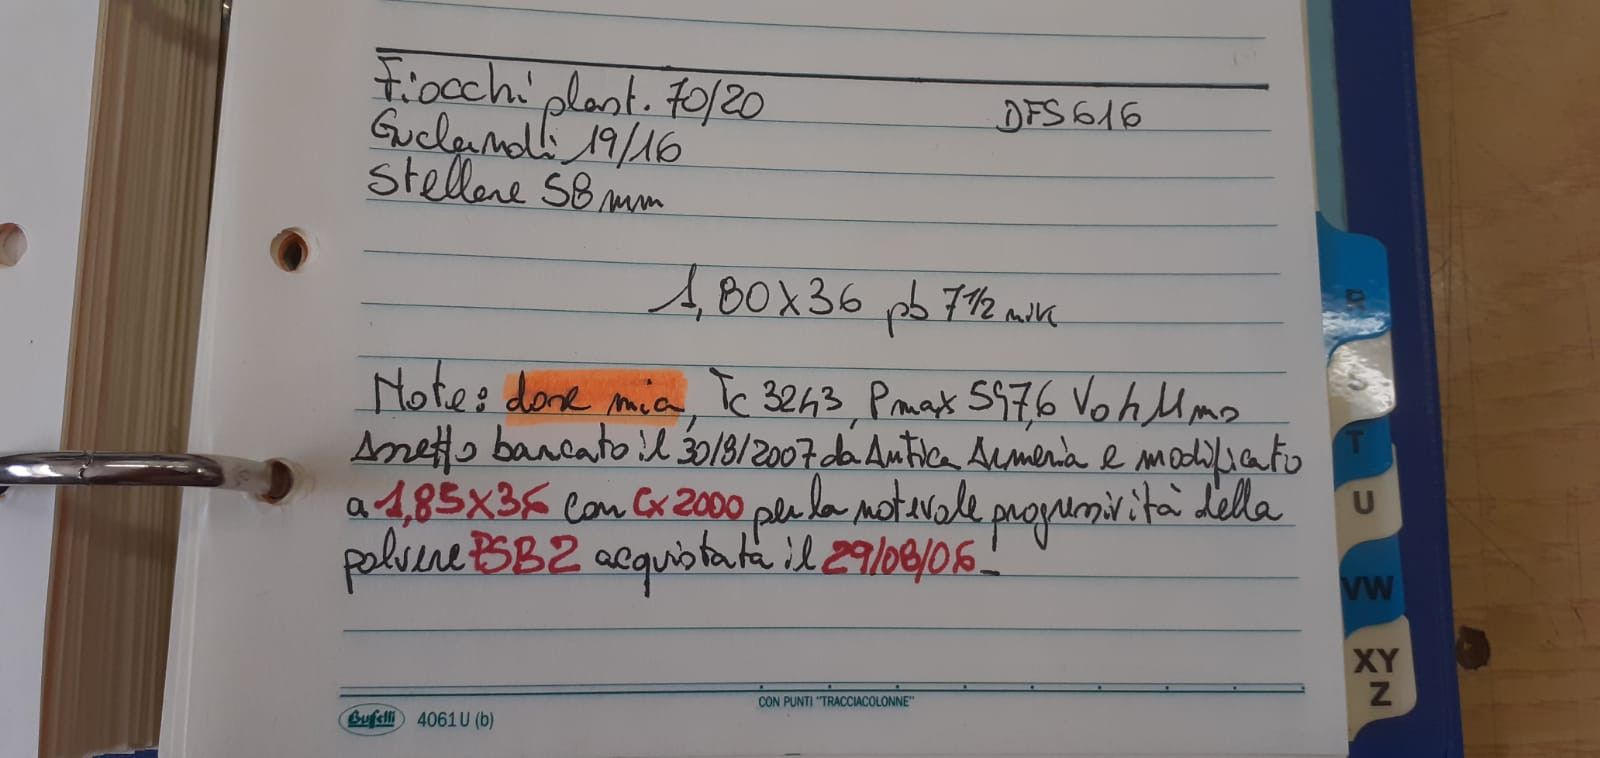 Fiocchi plast. 70/20 DFS616
Gualandi 19/16
Stellare 58 mm
1,80X36 pb 7 1/2 nik
Note: dose mia, Tc 3243, Pmax 597,6 Vo
Assetto bancato il 30/8/2007 da Antica Armeria e modificato
a 1,85X36 con Cx2000 per la notevole progressività della
polvere PSB2 acquistata il 29/08/06
B
S
T
U
VW
XY
Z
CON PUNTI "TRACCIACOLONNE"
Buffetti 4061 U (b)